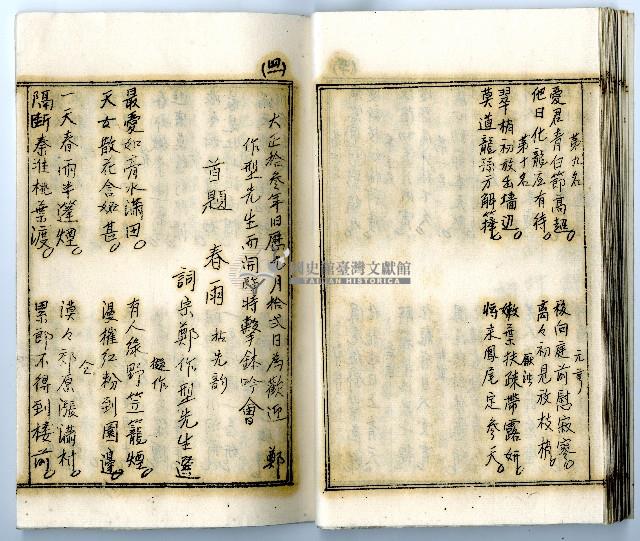 第九名 元亨
愛君青白節高超。 移向庭前慰寂寥。
他日化龍应有待。 离々初見放枝梢。
第十名
翠梢初放出墻邊。 嫩葉扶疎帶露妍。
莫道龍孫方解籜。 将来鳳尾定参天。
(四)
大正拾叁年旧曆九月拾弍日為歡迎 鄭
作型先生而開臨時擊鉢吟會
首題 春雨 拈先韵
詞宗鄭作型先生選
擬作
最愛如膏水滿田。 有人綠野笠籠煙。
天女散花含娠甚。 濕摧紅粉到園邊。
仝
一天春雨半瀅煙。 漠々郊原漲滿村。
隔斷秦淮桃葉渡。 累郎不得到樓前。
國史館臺灣文獻館
TAIWAN HISTORICA